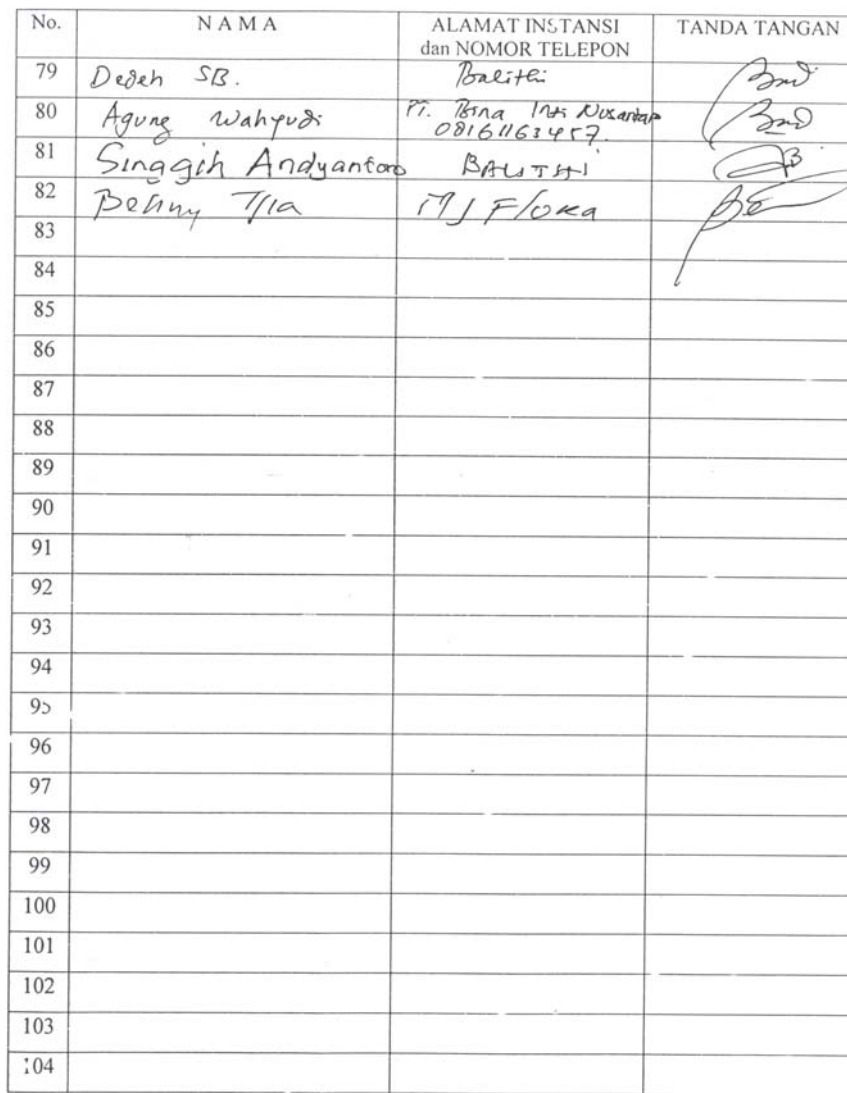 No. N A M A ALAMAT INSTANSI TANDA TANGAN
dan NOMOR TELEPON
79 Dedeh SB. Balithi
80 Agung Wahyudi PT. Bina Inti Nusantara
08161163457
81 Singgih Andyantoro BALITHI
82 Benny Tjia MJ Flora
83
84
85
86
87
88
89
90
91
92
93
94
95
96
97
98
99
100
101
102
103
104